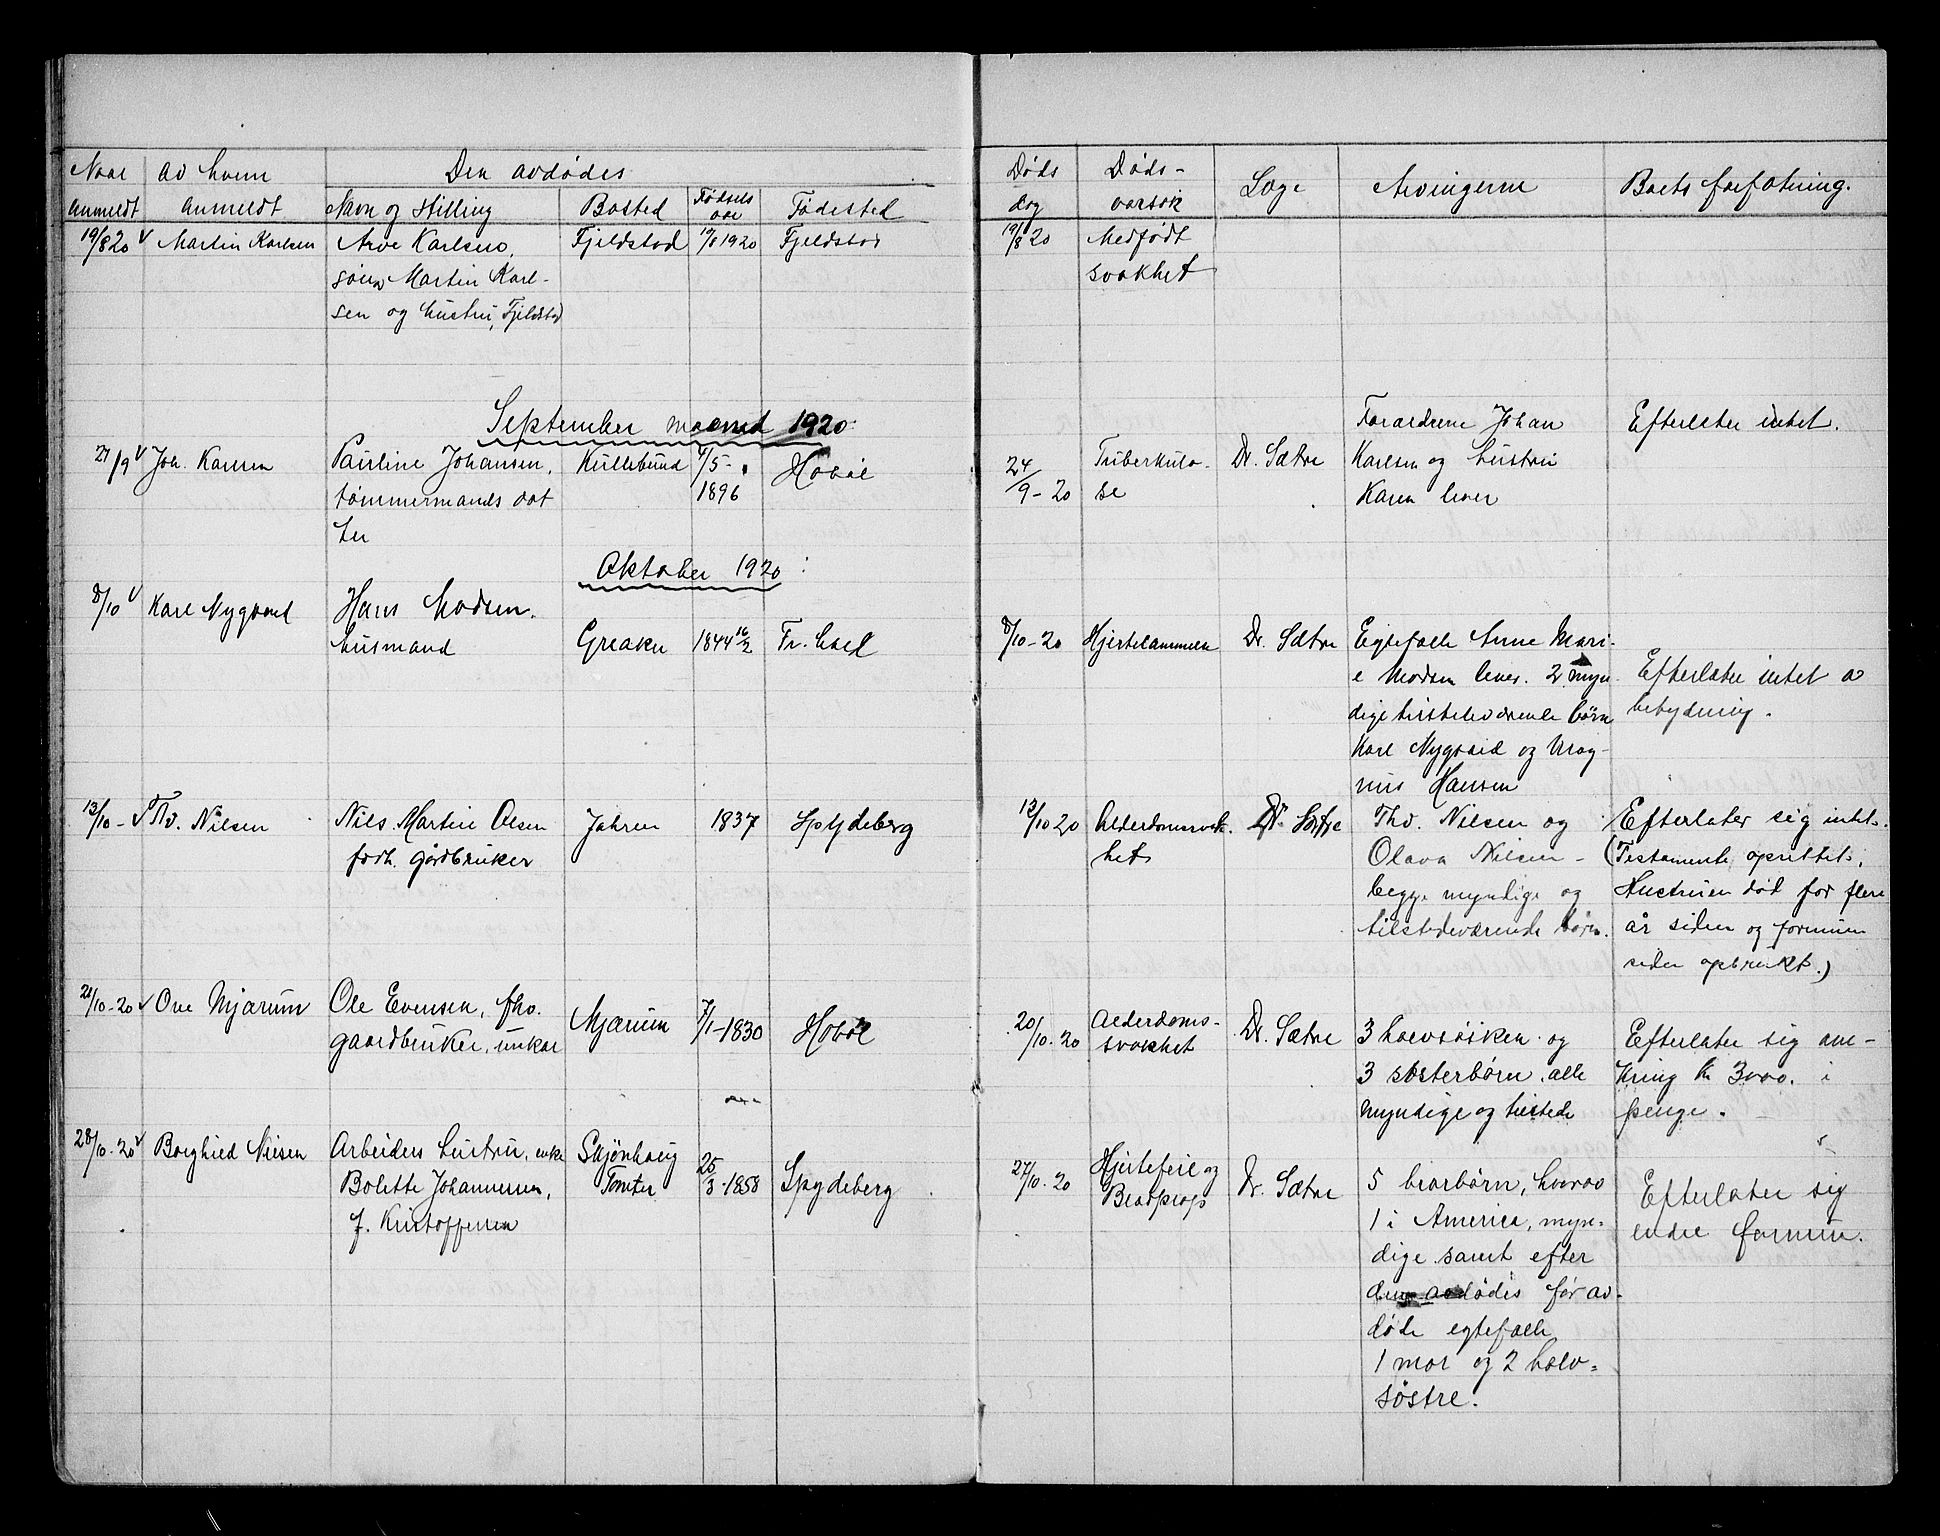 Naar
anmeldt
Av hvem
anmeldt
Den avdødes
Navn og Stilling
Bosted
Fødsels
aar
Fødested
Døds
dag
Døds-
aarsak
Læge
Arvingerne
Boets forfatning.
19/8 20 Martin Karlsen Arve Karlsen, Fjeldstad 19/8 1920 Fjeldstad 19/8 20 Medfødt
søn av Martin Karl- svakhet
sen og hustru, Fjeldstad
September maaned 1920:
Forældrene Johan Efterlater intet.
27/9 Joh. Karlsen Pauline Johansen, Kullebund 4/5- Hobøl 24/9-20 Tuberkulo- Dr. Sætre Karlsen og hustru
tømmermands dat 1896 se Karen lever
ter
Oktober 1920:
8/10 Karl Nygaard Hans Madsen.
husmand Greaker 1844 16/2 Tr. hael 8/10-20 Hjertelammelse Dr. Sætre Egtefælle Anne Mari-
e Madsen lever. 2 myn- Efterlater intet a
dige tilstedeværende børn betydning.
Karl Nygaard og Mag-
nus Hansen
13/10- Th. Nilsen Nils Martin Olsen Jahren 1837 Spydeberg 12/10 20 Alderdomssvak- Dr. Sætre Thv. Nilsen og Efterlater sig intet.
forh. gårdbruker het Olava Nilsen - (Testamente oprettet,
begge myndige og Hustruen død for flere
tilstedeværende børn. år siden og formuen
siden opbrukt.)
21/10-20 Ove Mjærum Ole Evensen, fhv. Mjærum 7/1-1830 Hobøl 20/10.20 Alderdoms- Dr. Sætre 3 halvsøsken og Efterlater sig om-
gaardbruker, unkar svakhet 3 søsterbørn, alle kring kr 3000. i
myndige og tilstede penge.
28/10.20 Borghild Nilsen Arbeiders hustru, enke Skjønhaug 25/3-1858 Spydeberg 27/10.20 Hjertefeil og Dr. Sætre 5 brorbørn, hvorav Efterlater sig
Bolette Johannessen, Tomter 1 i America, myn- endel formue.
f. Kristoffersen dige samt efter
den avdødes før av-
døde egtefælle
1 mor og 2 halv-
søstre.